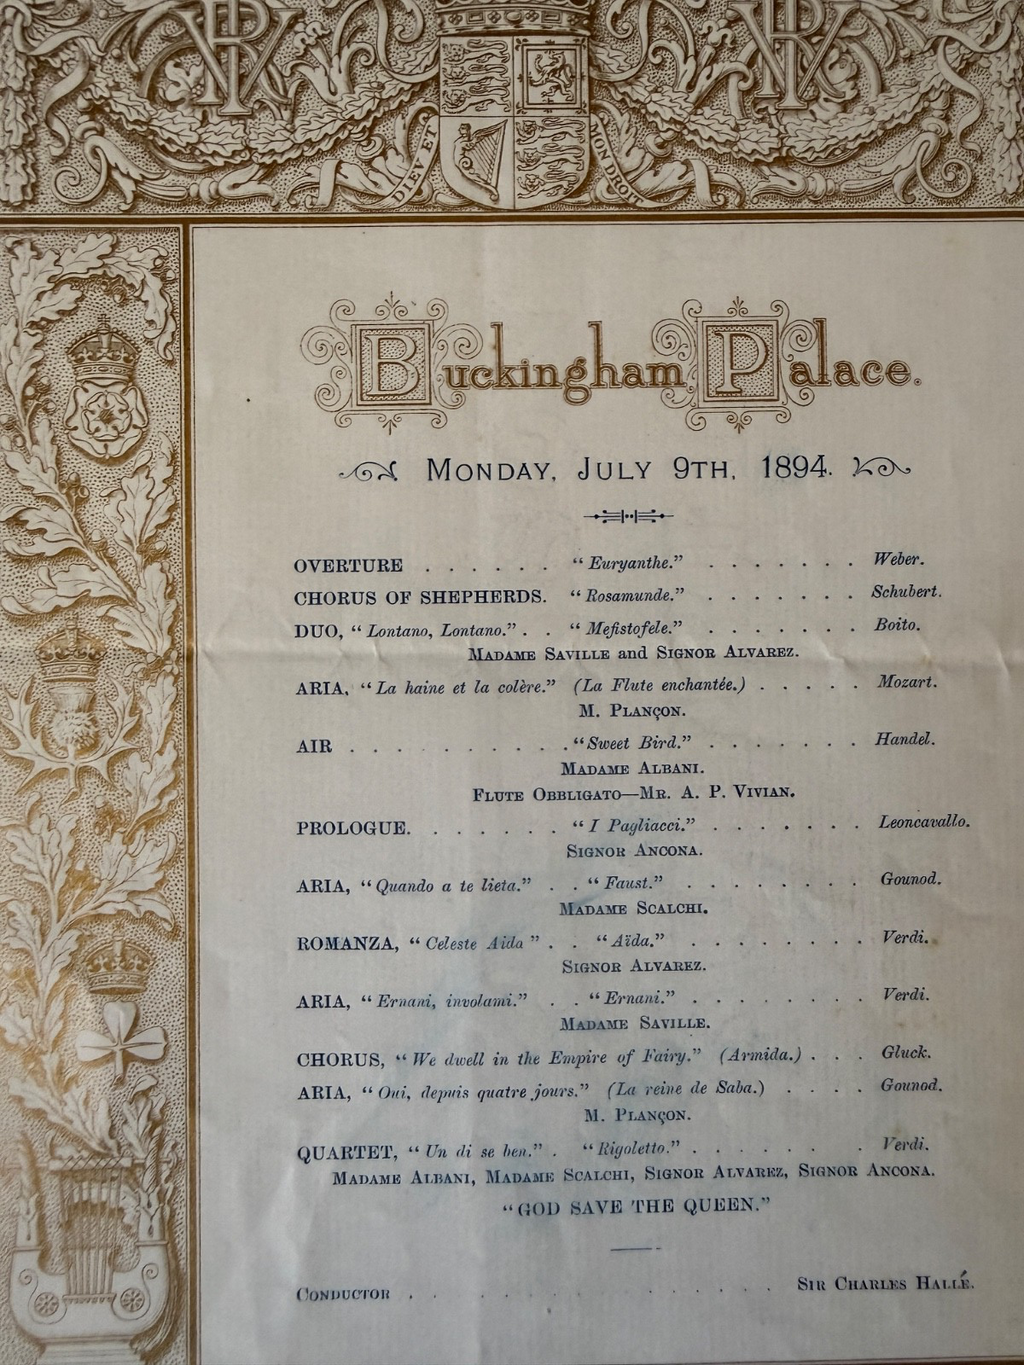 DIEU ET MON DROIT
Buckingham Palace.
MONDAY, JULY 9TH, 1894.
OVERTURE . . . . . . "Euryanthe." . . . . . . . Weber.
CHORUS OF SHEPHERDS. "Rosamunde." . . . . . . . Schubert.
DUO, "Lontano, Lontano." . . "Mefistofele." . . . . . . . Boito.
MADAME SAVILLE and SIGNOR ALVAREZ.
ARIA, "La haine et la colère." (La Flute enchantée.) . . . . . Mozart.
M. PLANÇON.
AIR . . . . . . . . . . "Sweet Bird." . . . . . . . Handel.
MADAME ALBANI.
FLUTE OBBLIGATO—MR. A. P. VIVIAN.
PROLOGUE. . . . . . . "I Pagliacci." . . . . . . . Leoncavallo.
SIGNOR ANCONA.
ARIA, "Quando a te lieta." . . "Faust." . . . . . . . . Gounod.
MADAME SCALCHI.
ROMANZA, "Celeste Aida" . . "Aïda." . . . . . . . . Verdi.
SIGNOR ALVAREZ.
ARIA, "Ernani, involami." . . "Ernani." . . . . . . . . Verdi.
MADAME SAVILLE.
CHORUS, "We dwell in the Empire of Fairy." (Armida.) . . . Gluck.
ARIA, "Oui, depuis quatre jours." (La reine de Saba.) . . . . Gounod.
M. PLANÇON.
QUARTET, "Un di se ben." . "Rigoletto." . . . . . . . . Verdi.
MADAME ALBANI, MADAME SCALCHI, SIGNOR ALVAREZ, SIGNOR ANCONA.
"GOD SAVE THE QUEEN."
CONDUCTOR . . . . . . . . . . . SIR CHARLES HALLÉ.